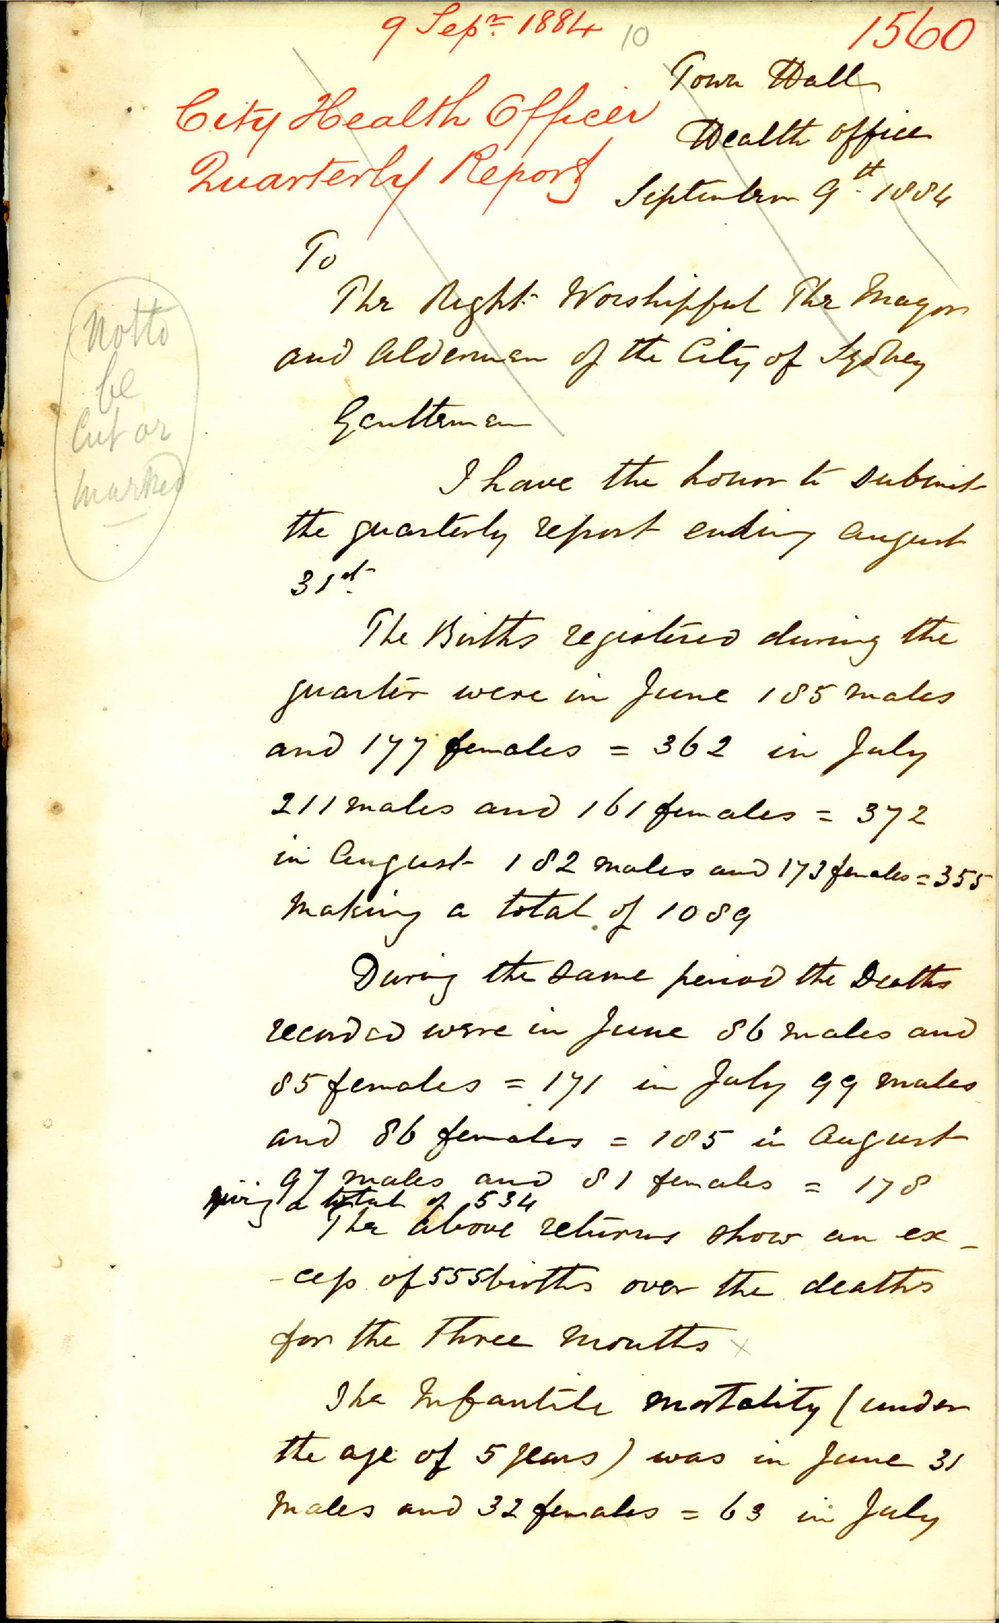 9 Sepr. 1884
10
1560
City Health Officer
Quarterly Report
Town Hall
Health office
September 9th. 1884
To
The Right Worshipful The Mayor
and Aldermen of the City of Sydney
Gentlemen
Not to
be
Cut or
marked
I have the honor to submit
the quarterly report ending August
31st.
The Births registered during the
quarter were in June 185 males
and 177 females = 362 in July
211 males and 161 females = 372
in August 182 males and 173 females = 355
Making a total of 1089
During the same period the Deaths
recorded were in June 86 males and
85 females = 171 in July 99 males
and 86 females = 185 in August
97 males and 81 females = 178
giving a total of 534
The above returns show an ex-
-cess of 555 births over the deaths
for the three months x
The Infantile mortality (under
the age of 5 years) was in June 31
Males and 32 females = 63 in July